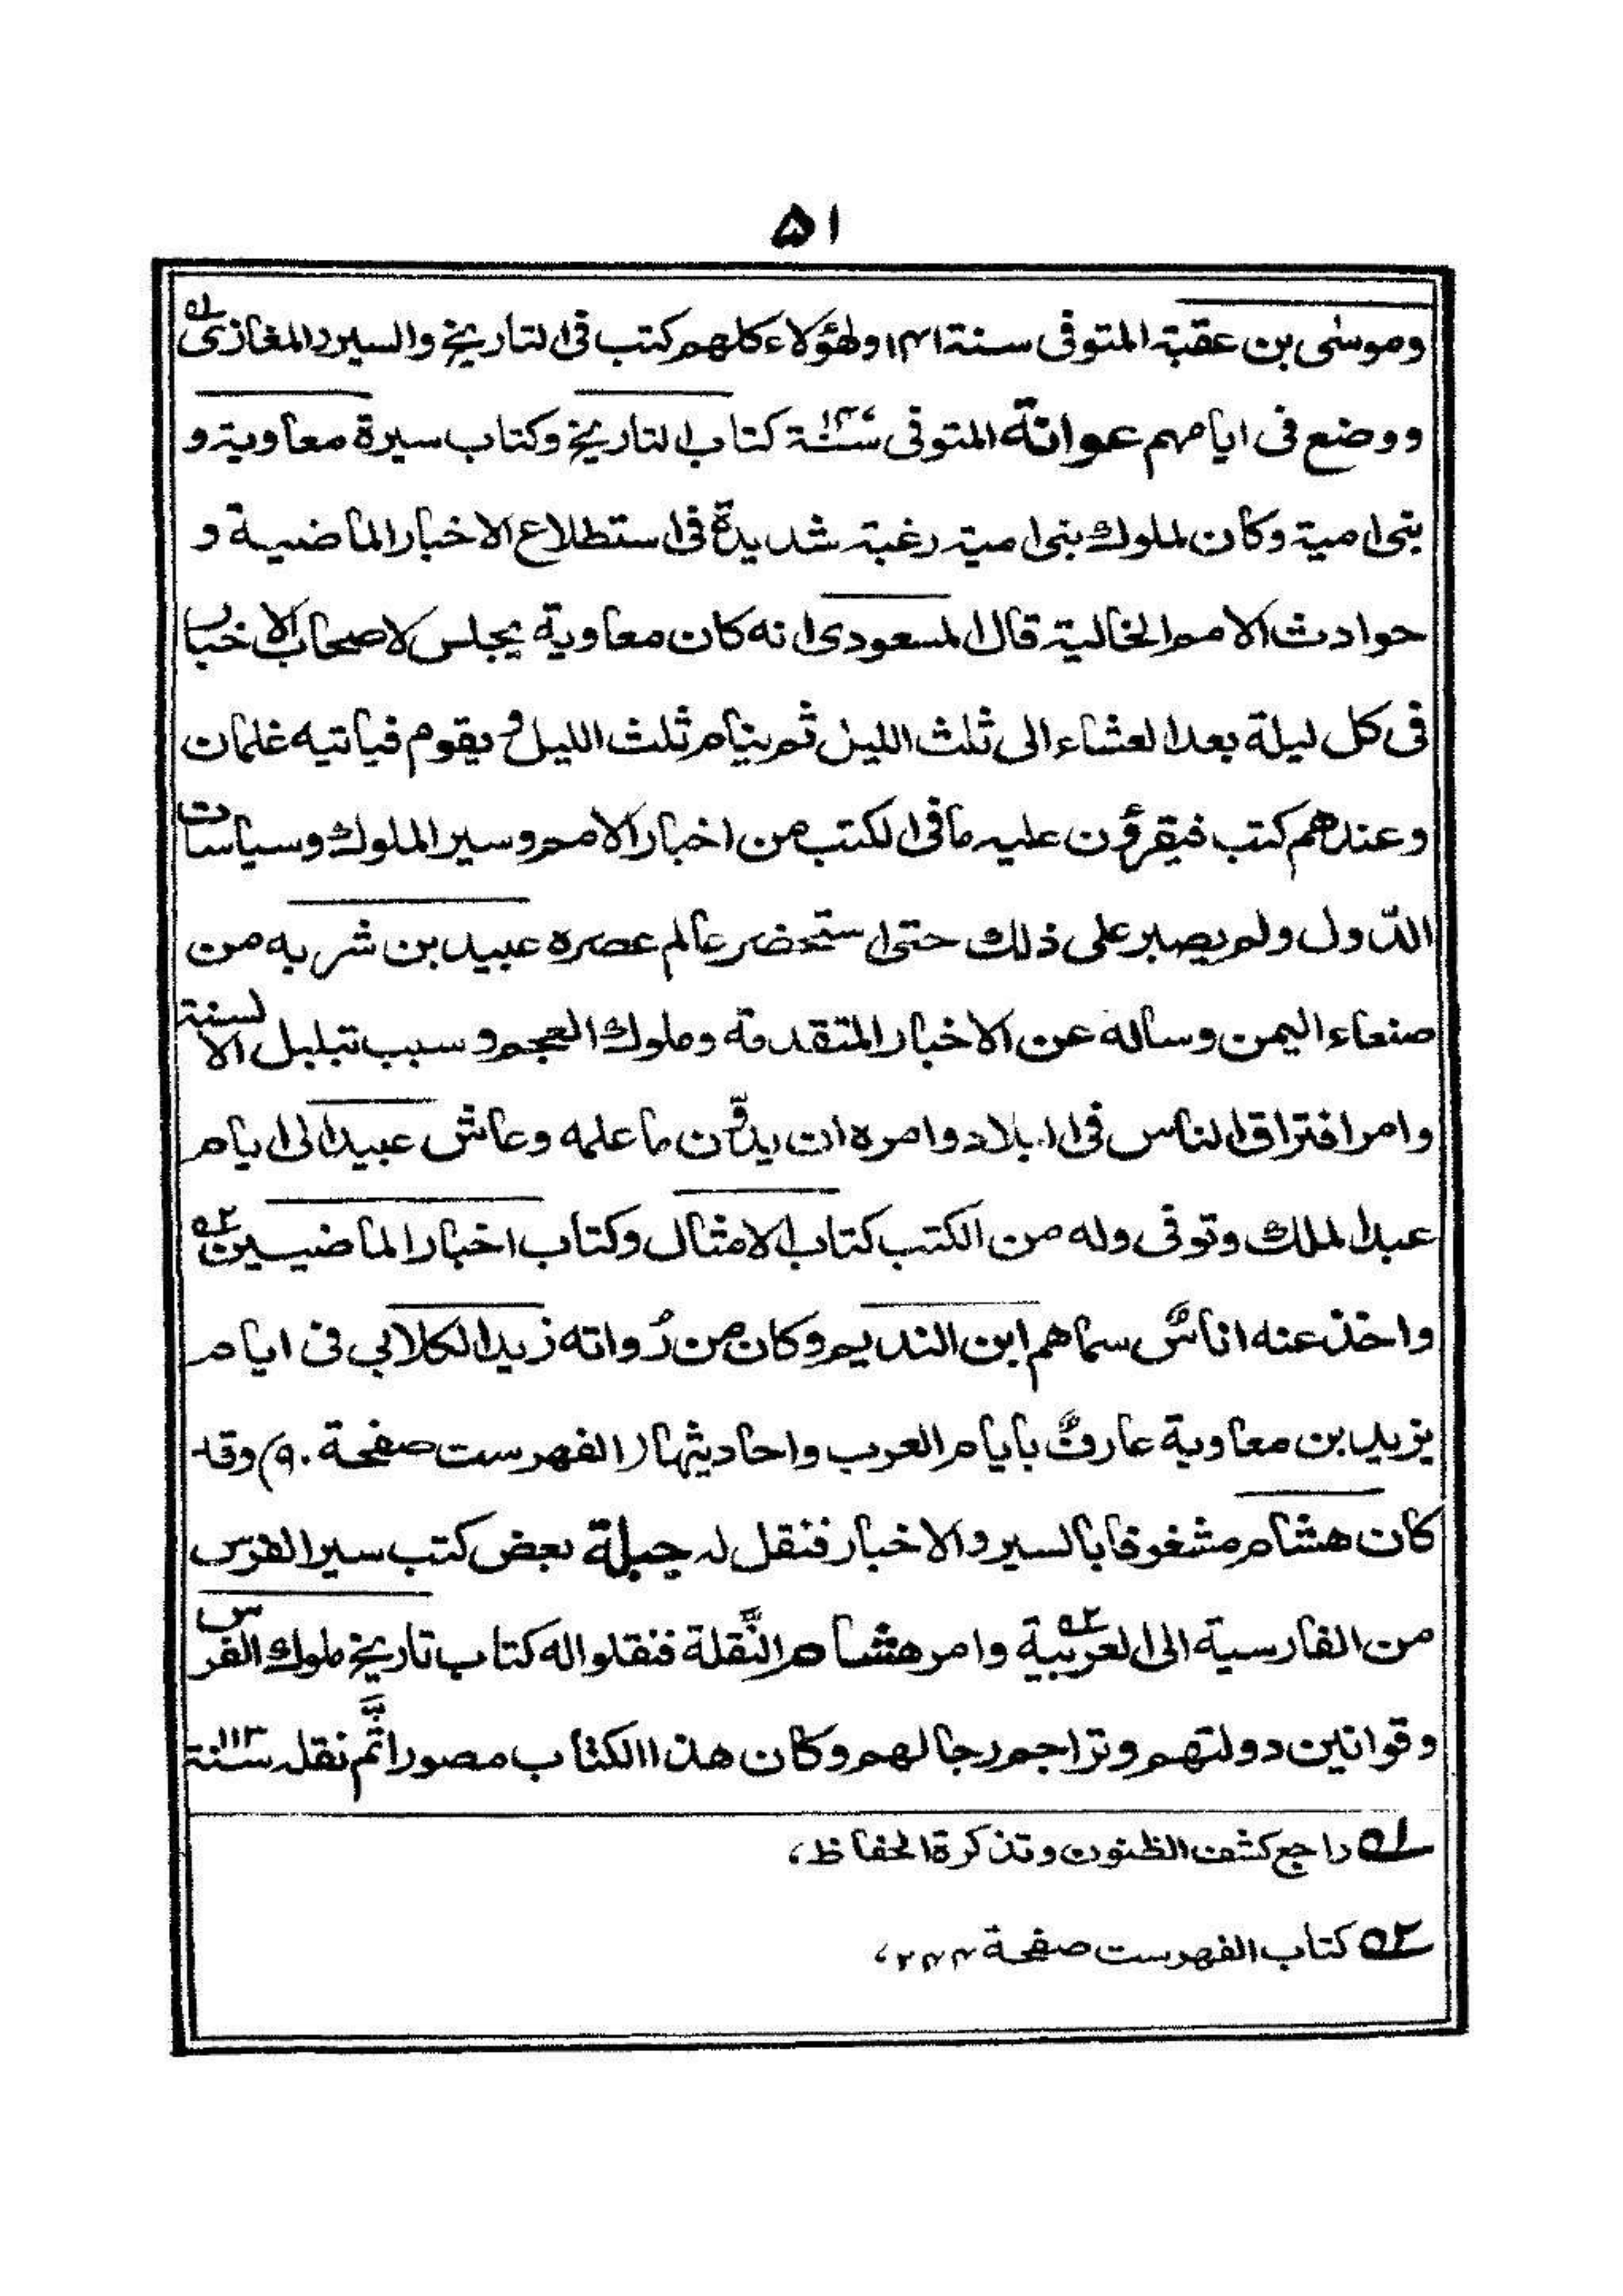 ۵۱
وموسٰی بن عقبة المتوفی سنة ۱۴۱ ولهؤلاء کلهم کتب فی التاریخ والسیر والمغازی ۱ه
ووضع فی ایامهم عوانة المتوفی سنة کتاب التاریخ وکتاب سیرة معاویة و
بنی امیة وکان لملوك بنی امیة رغبة شدیدة فی استطلاع الاخبار الماضیة و
حوادث الامم الخالیة قال المسعودی انه کان معاویة یجلس لاصحاب الاخبار
فی کل لیلة بعد العشاء الی ثلث اللیل ثم ینام ثلث اللیل و یقوم فیاتیه غلمان
وعندهم کتب فیقرؤن علیه ما فی الکتب من اخبار الامم وسیر الملوك وسیاسات
الدّول ولم یصبر علی ذلك حتی استحضر عالم عصره عبید بن شریه من
صنعاء الیمن وساله عن الاخبار المتقدمة وملوك العجم وسبب تبلبل الالسنة
وامر افتراق الناس فی البلاد وامره ان یدوّن ما علمه وعاش عبید الی ایام
عبد الملك وتوفی وله من الکتب کتاب الامثال وکتاب اخبار الماضیین ۲ه
واخذ عنه اناسٌ سماهم ابن الندیم وکان من رُواته زید الکلابی فی ایام
یزید بن معاویة عارفٌ بایام العرب واحادیثها (الفهرست صفحة ۹۰) وقد
کان هشام مشغوفا بالسیر والاخبار فنقل له جبلة بعض کتب سیر الفرس
من الفارسیة الی العربیة ۲ه وامر هشام النَّقلة فنقلوا له کتاب تاریخ ملوك الفرس
وقوانین دولتهم وتراجم رجالهم وکان هذا الکتاب مصورا تَّم نقله سنة ۱۱۳
۱ه راجع کشف الظنون وتذکرة الحفاظ،
۲ه کتاب الفهرست صفحة ۲۴۴،